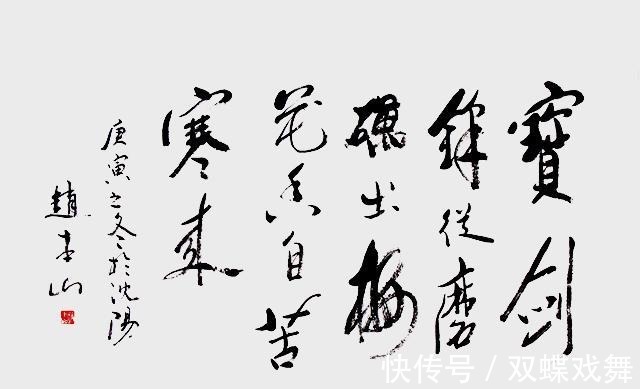 寶劍
鋒從磨
礪出梅
花香自苦
寒來
庚寅之冬於沈陽
趙本山
快传号 / 双蝶戏舞